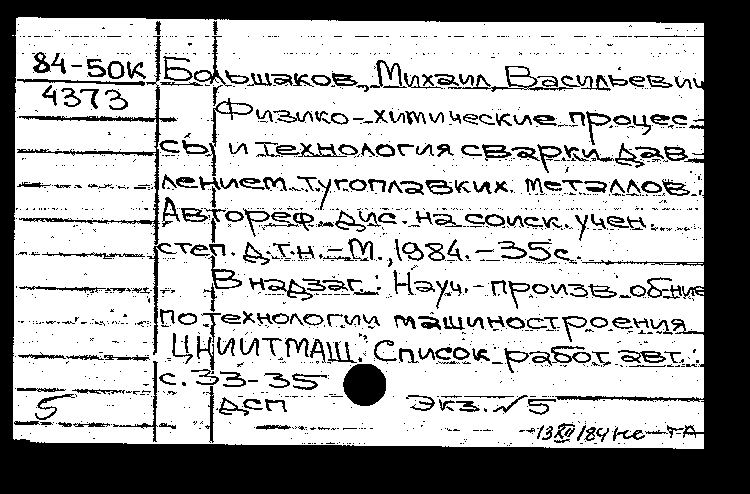 84-50К Большаков, Михаил Васильевич
4373
Физико-химические процес-
сы и технология сварки дав-
лением тугоплавких металлов.
Автореф. дис. на соиск. учен.
степ. д.т.н. - М., 1984. - 35с.
В надзаг.: Науч.-произв. об-ние
по технологии машиностроения
ЦНИИТМАШ. Список работ авт.:
с. 33-35
5 ДСП Экз. №5
13 XII 184